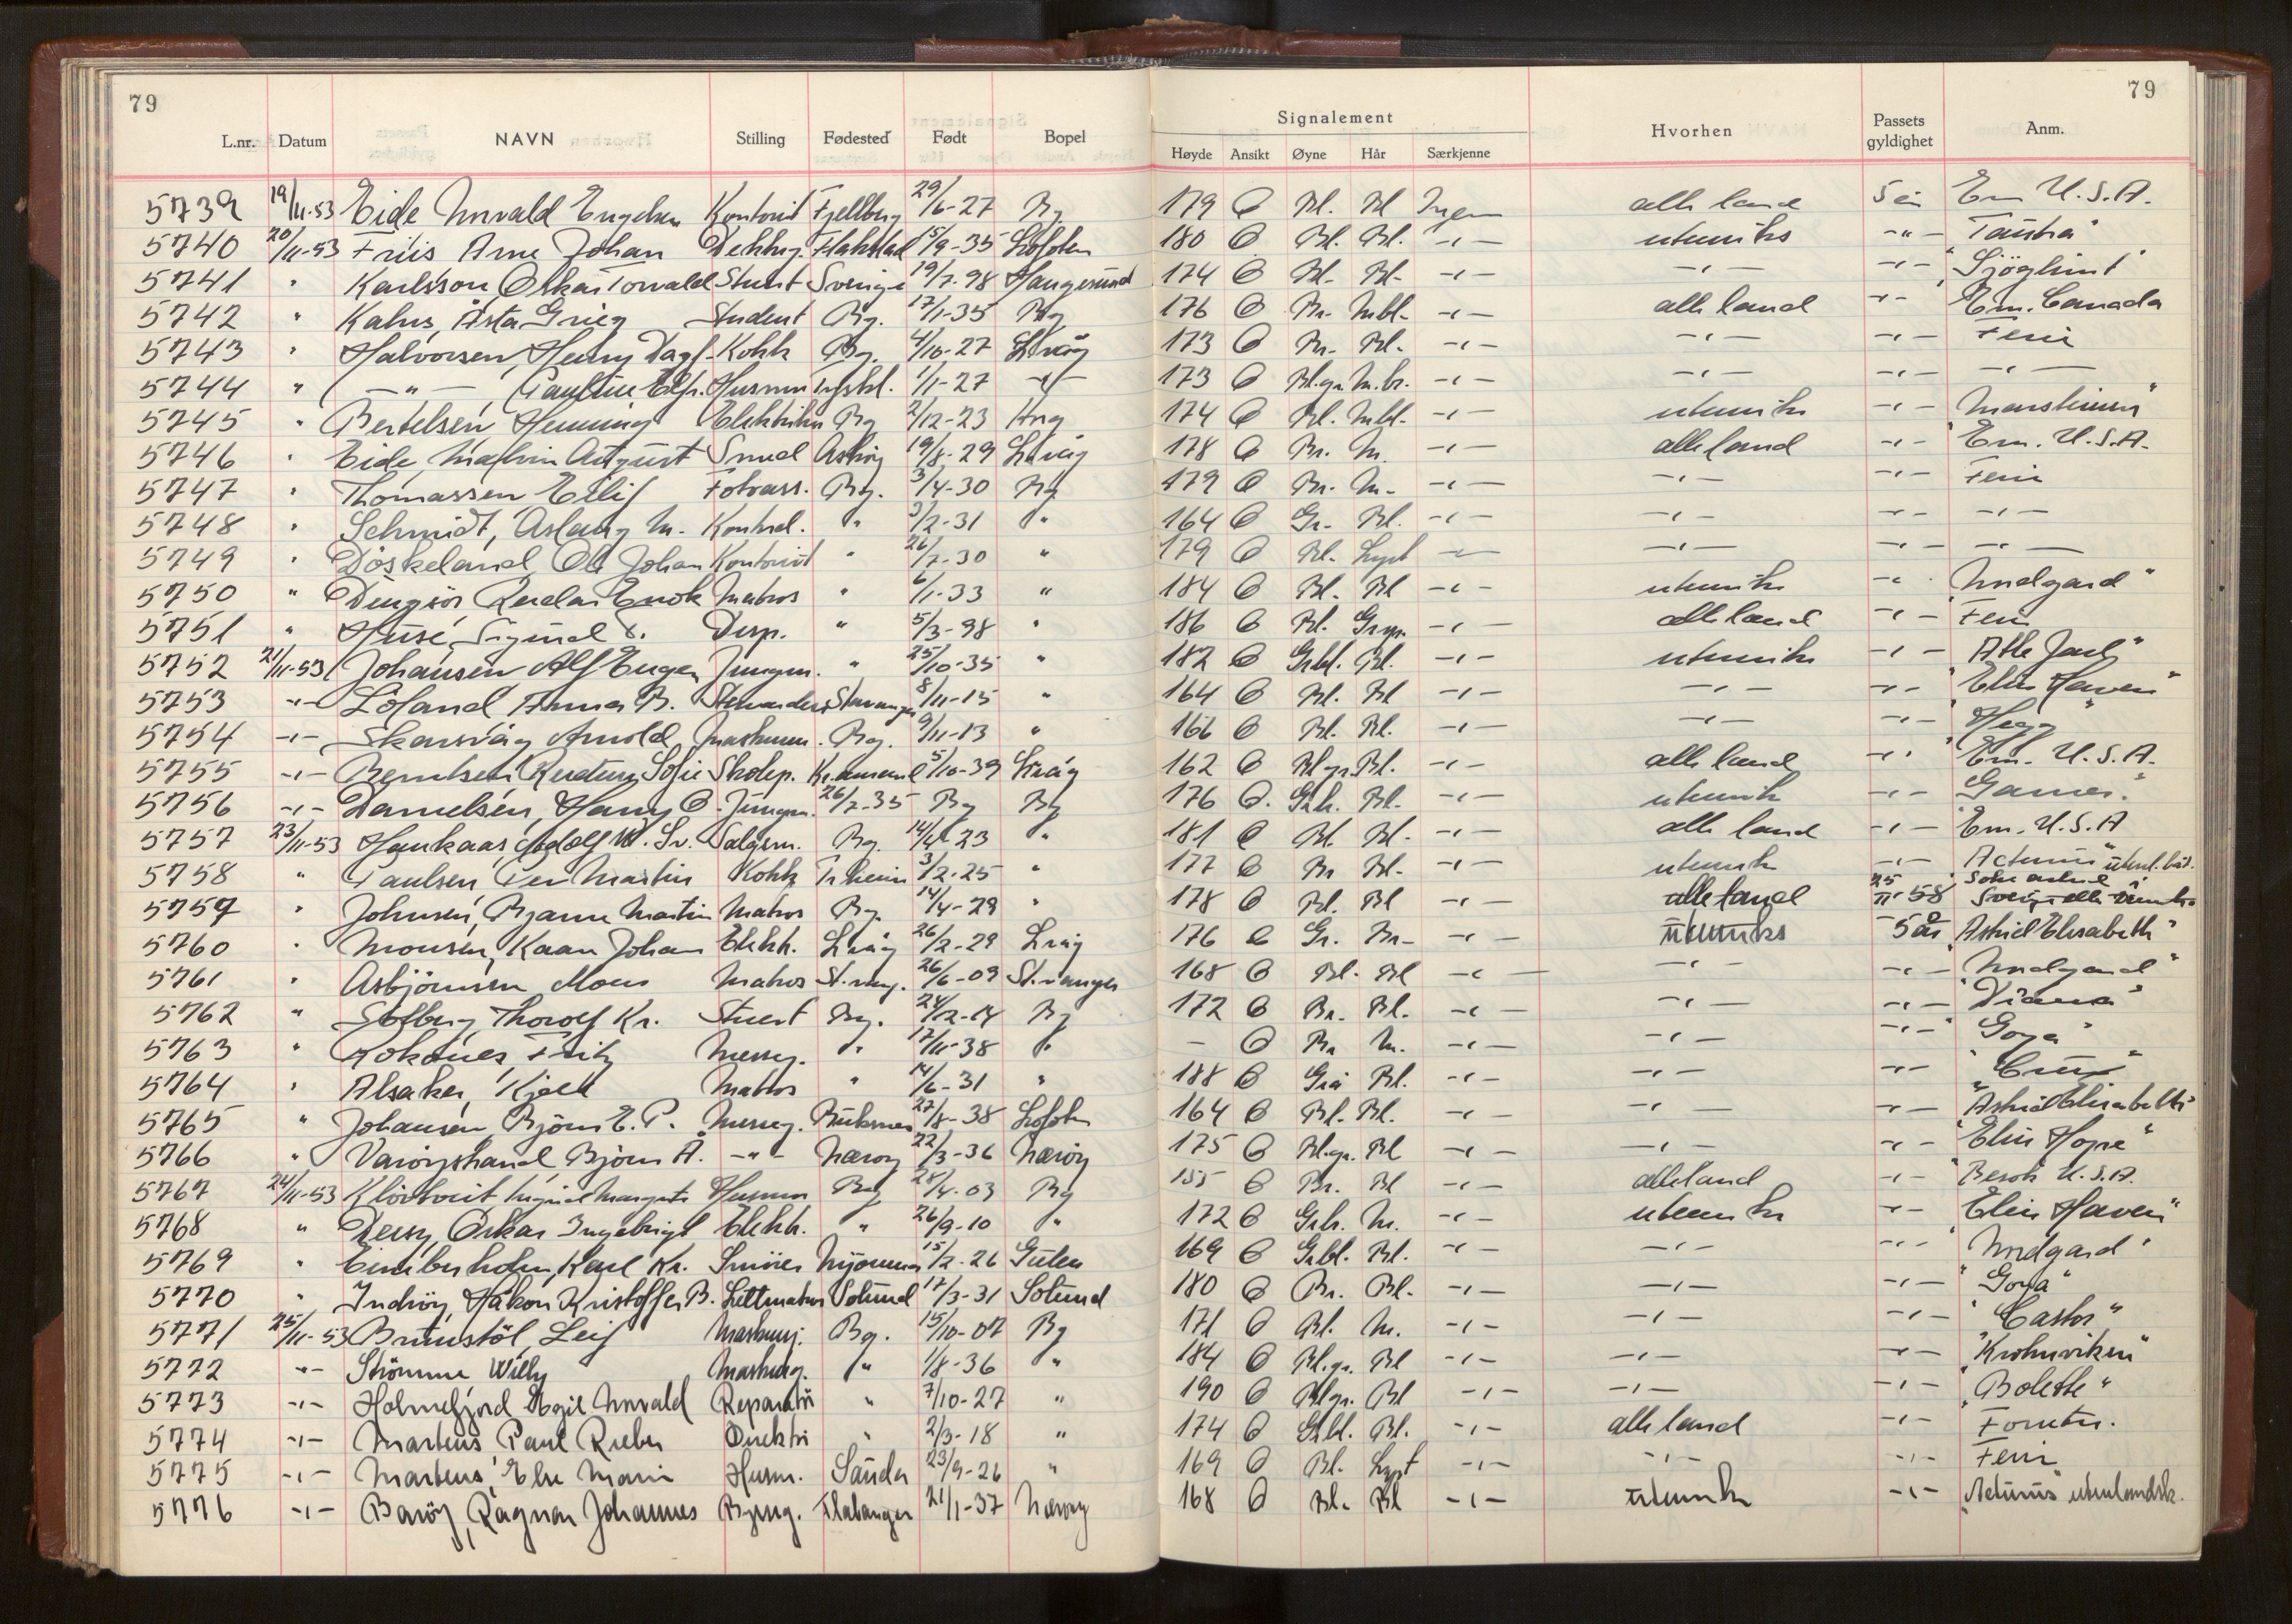 79
79
L.nr. Datum NAVN Stilling Fødested Født Bopel Signalement Hvorhen Passets gyldighet Anm.
Høyde Ansikt Øyne Hår Særkjenne
5739 19/11-53 Eide Norvald Engelsen Kontorist Fjellberg 29/6-27 Bg 179 O Bl. Bl Ingen alle land 5 år Em U.S.A.
5740 20/11-53 Friis Arne Johan Dekksg. Flakstad 15/9-35 Lofoten 180 O Bl. Bl. -"- utenriks -"- "Tautra"
5741 " Karlsson, Oskar Torvald Stuert Sverige 19/7-98 Haugesund 174 O Bl. Bl. -"- -"- -"- "Sjöglimt"
5742 " Kahrs, Åsta Grieg Student Bg. 17/1-35 Bg 176 O Br. Mbl. -"- alle land -"- Em. Canada
5743 " Halvorsen, Henry Dagf. Kokk Bg. 4/10-27 Lvåg 173 O Br. Bl. -"- -"- -"- Ferie
5744 " -"- , Pauline Elfr. Husmor Tyskl. 1/1-27 -"- 173 O Bl.gr. M.br. -"- -"- -"- -"-
5745 " Bertelsen Henning Elektriker Bg 2/12-23 174 O Bl. Mbl. -"- utenriks -"-
5746 " Eide, Malvin August Smed Askøy 19/8-29 Lvåg 178 O Br. M. -"- alle land -"- Em. U.S.A.
5747 " Thomassen Eilif Fotoass. Bg. 3/4-30 Bg 179 O Br. M. -"- -"- -"- Ferie
5748 " Schmidt, Aslaug M. Kontord. " 3/2-31 " 164 O Gr. Bl. -"- -"- -"- -"-
5749 " Döskeland, Ole Johan Kontorist " 26/7-30 " 179 O Bl. Lyst -"- -"- -"- -"-
5750 " Reidar Enok Matros " 6/1-33 " 184 O Bl. Bl -"- utenriks -"- "Midgard"
5751 " Husé, Sigurd Disp. " 5/3-98 " 186 O Bl. -"- alle land -"- Ferie
5752 21/11-53 Johansen Alf Eugen Jungm. " 25/10-35 " 182 O Grbl. Bl. -"- utenriks -"- "Atle Jarl"
5753 -"- Löland Anna B. Stavanger 8/11-15 " 164 O Bl. Bl -"- -"- -"- "Elin Haven"
5754 -"- Skarsvåg Arnold Maskinm. Bg. 9/11-13 " 166 O Bl. Bl. -"- -"- -"- "Hegg"
5755 -"- Berntsen Sofie Skolep. Kr.ansund 5/10-39 Lvåg 162 O Blgr. Bl. -"- alle land -"- Em. U.S.A.
5756 -"- Danielsen, Harry O. Jungm. 26/7-35 Bg Bg 176 O. Bl. -"- utenrik -"-
5757 23/11-53 Haukaas, Adolf Sv. Salgsm. Bg. 14/4-23 " 181 O Bl. Bl. -"- alle land -"- Em. U.S.A
5758 " Paulsen Per Martin Kokk Tr.heim 3/2-25 " 177 O Br Bl. -"- utenrik -"- "Acturus" utenl. båt.
5759 " Johnsen, Bjarne Martin Matros Bg. 14/4-29 " 178 O Bl. Bl -"- alle land 25/11-58
5760 " Monsen, Kaare Johan Elektr. Lvåg 26/2-29 Lvåg 176 O Gr. Br. -"- utenriks 5 år "Astrid Elisabeth"
5761 " Asbjörnsen Mons Matros St.vang. 26/6-09 St.vanger 168 O Bl. Bl -"- -"- -"- "Midgard"
5762 " Solberg, Thorolf Kr. Stuert Bg. 24/12-14 Bg 172 O Br. Bl. -"- -"- -"- "Diana"
5763 " Rokones, Fritz Messeg. " 17/11-38 " - O Br M. -"- -"- -"- "Goya"
5764 " Alsaker, Kjell Matros " 14/6-31 " 188 O Grå Bl. -"- -"- -"-
5765 " Johansen Bjørn E. P. Messeg. Buksnes 27/8-38 Lofoten 164 O Bl. Bl. -"- -"- -"- "Astrid Elisabeth"
5766 " Bjørn A. -"- Nærøy 22/3-36 Nærøy 175 O Blgr. Bl -"- -"- -"- "Elin Hope"
5767 24/11-53 Klövtveit Ingrid Margrete Husmor Bg 28/4-03 Bg 155 O Br. Bl -"- alle land -"- Besøk U.S.A.
5768 " Oskar Ingebrigt Elektr. " 26/9-10 " 172 O Grbr. M. -"- utenriks -"- "Elin Haven"
5769 " Karl Kr. Smører 15/2-26 Gulen 169 O Grbl. Bl. -"- -"- -"- "Midgard"
5770 " Indrøy, Håkon Kristoffer B. Lettmatros Solund 17/3-31 Solund 180 O Br. Bl. -"- -"- -"- "Goya"
5771 25/11-53 Brunstöl, Leif Maskinsj. Bg. 15/10-07 Bg 171 O Bl. M. -"- -"- -"- "Castor"
5772 -"- Strömme Willy " 1/8-36 " 184 O Bl.gr. Bl -"- -"- -"- "Krohnviken"
5773 -"- Holmefjord Egil Norvald Reparatör " 7/10-27 " 190 O Blgr. Bl -"- -"- -"- "Bolette"
5774 -"- Martens Paul Rieber Direktör " 2/3-18 " 174 O Grbl. Bl. -"- alle land -"- Forretn.
5775 -"- Martens, Else Marie Husm. Sauda 23/9-26 " 169 O Bl. Lyst -"- -"- -"- Ferie
5776 -"- Barøy, Ragnar Johannes Byssg. Flatanger 21/1-37 Nærøy 168 O Bl. Bl -"- utenrik -"- "Acturus" utenlandsk.